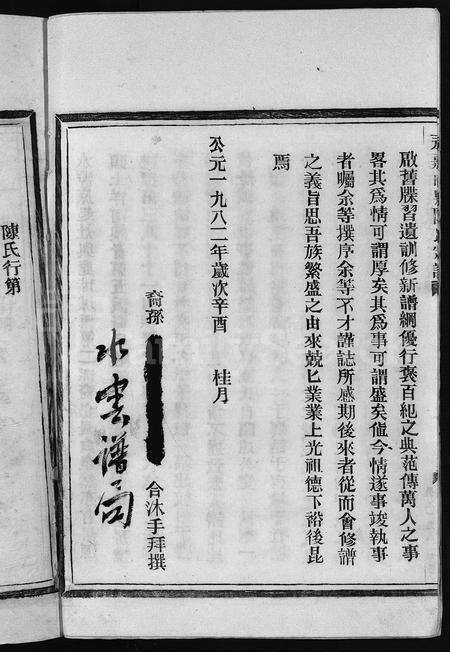 啟舊牒習遺訓修新譜綱優行褒百紀之典范傳萬人之事
畧其爲情可謂厚矣其爲事可謂盛矣値今情遂事竣執事
者囑余等撰序余等不才謹誌所感期後來者從而會修譜
之義旨思吾族繁盛之由來兢匕業業上光祖德下裕後昆
焉
公元一九八二年歲次辛酉 桂月
裔孫 合沐手拜撰
水雲譜局
陳氏行第